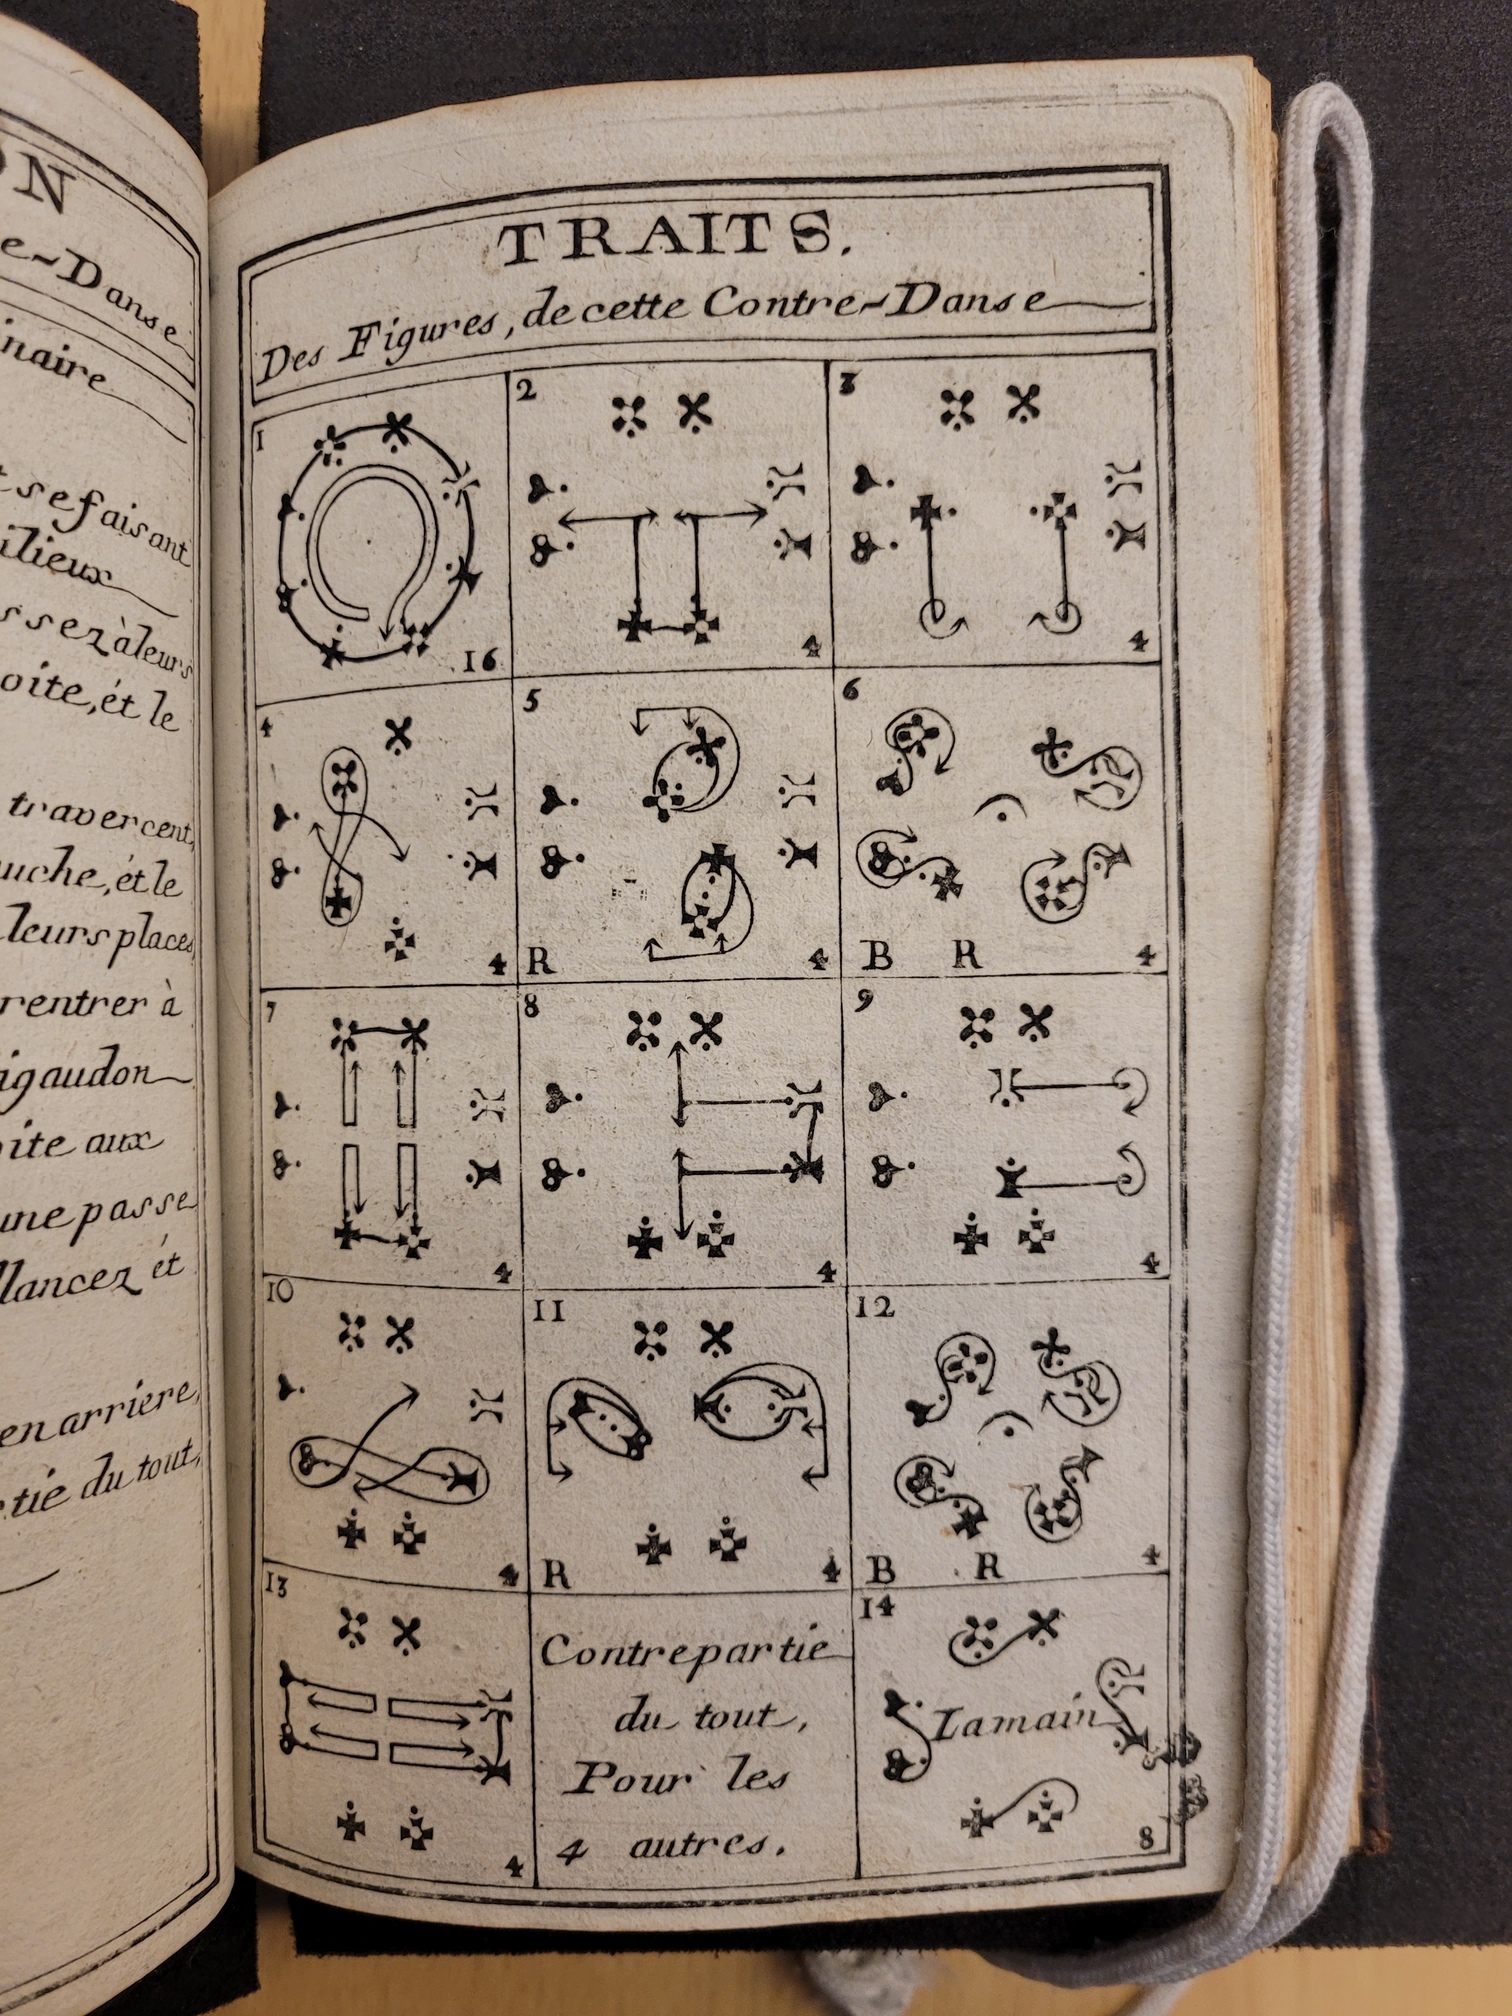 ON
e-Danse
naire
se faisant
ilieux
ssez à leurs
oite, ét le
travercent,
uche, ét le
leurs places
rentrer à
igaudon
oite aux
une passe
llancez ét
en arriere,
tie du tout,
TRAITS.
Des Figures, de cette Contre-Danse
1
16
2
4
3
4
4
4
5
R 4
6
B R 4
7
4
8
4
9
4
10
4
11
R 4
12
B R 4
13
4
Contrepartie
du tout,
Pour les
4 autres.
14
Lamain
8